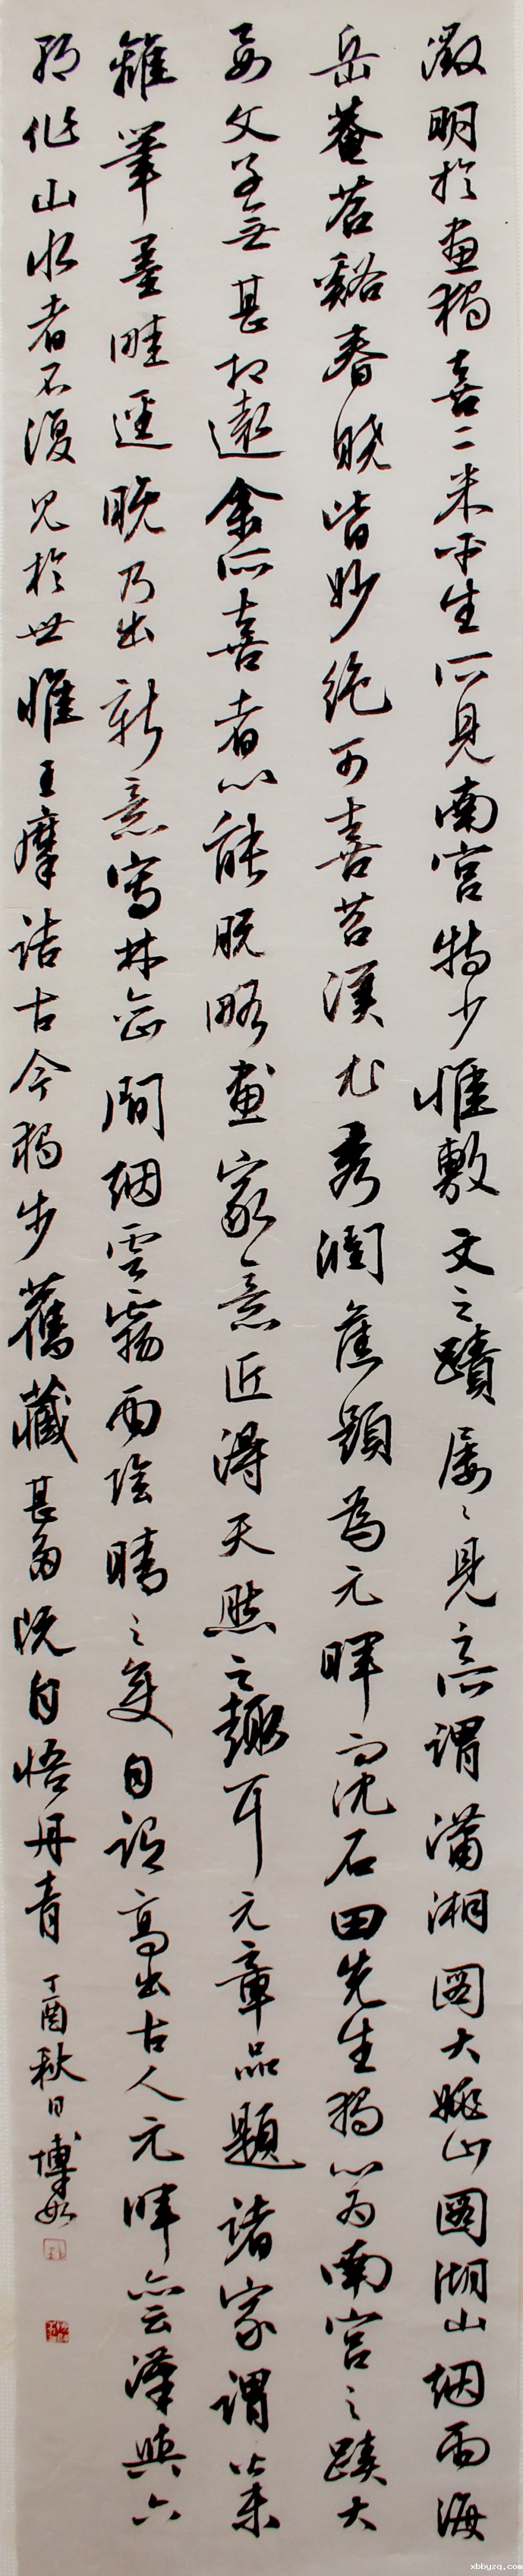 徵明於畫獨喜二米平生所見南宮特少惟敷文之蹟屡々見意謂瀟湘圖大姚山圖湖山烟雨海
岳菴苕谿春曉皆妙絶可喜苕溪尤秀潤舊題為元暉而沈石田先生獨以為南宮之蹟大
要父子無甚相遠余所喜者以能脱略畫家意匠得天然之趣耳元章品題諸家謂率
離筆墨畦逕晚乃出新意寫林巒間烟雲霧雨陰晴之变自謂高出古人元暉嘗謂漢與六
朝作山水者不復見於世惟王摩詰古今獨步舊藏甚多既自悟丹青
丁酉秋日 博如
xbbyzq.com